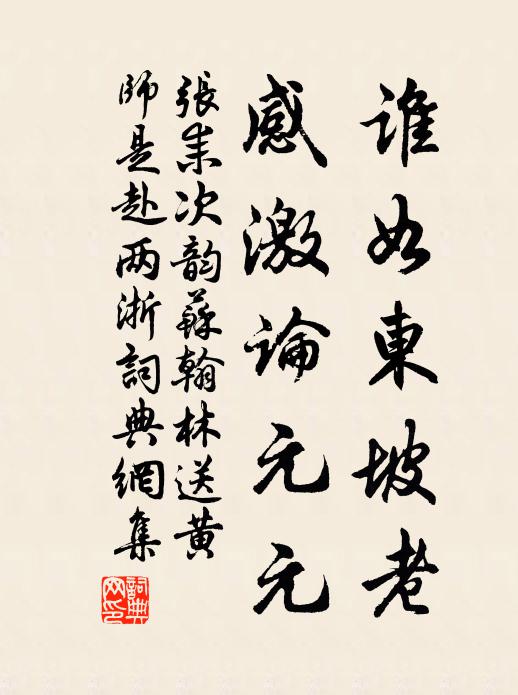 誰如東坡老
感激論元元
張耒次韵蘇翰林送黃
師是赴两浙詞典網集
詞典網印